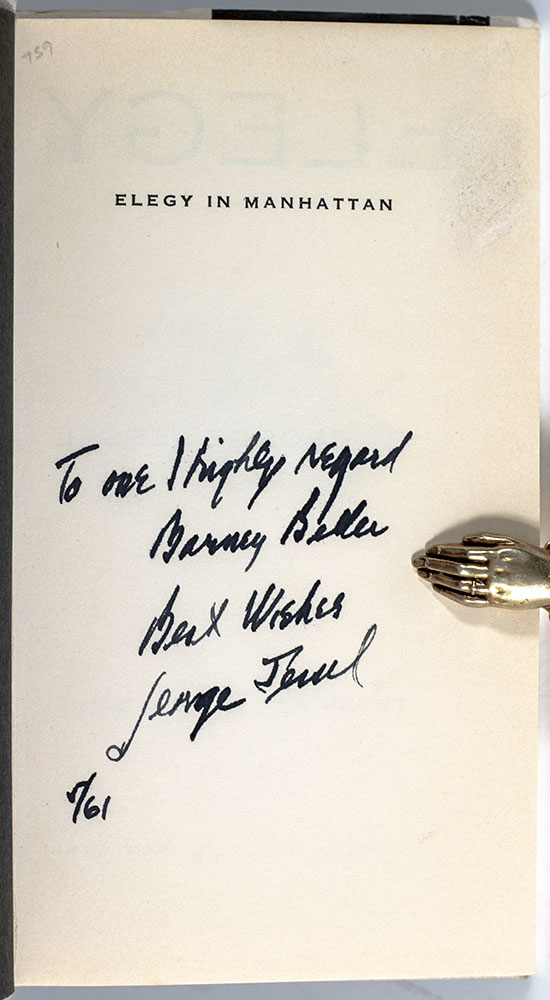 759
ELEGY
ELEGY IN MANHATTAN
To one I highly regard
Barney Beller
Best Wishes
George Jessel
7/61